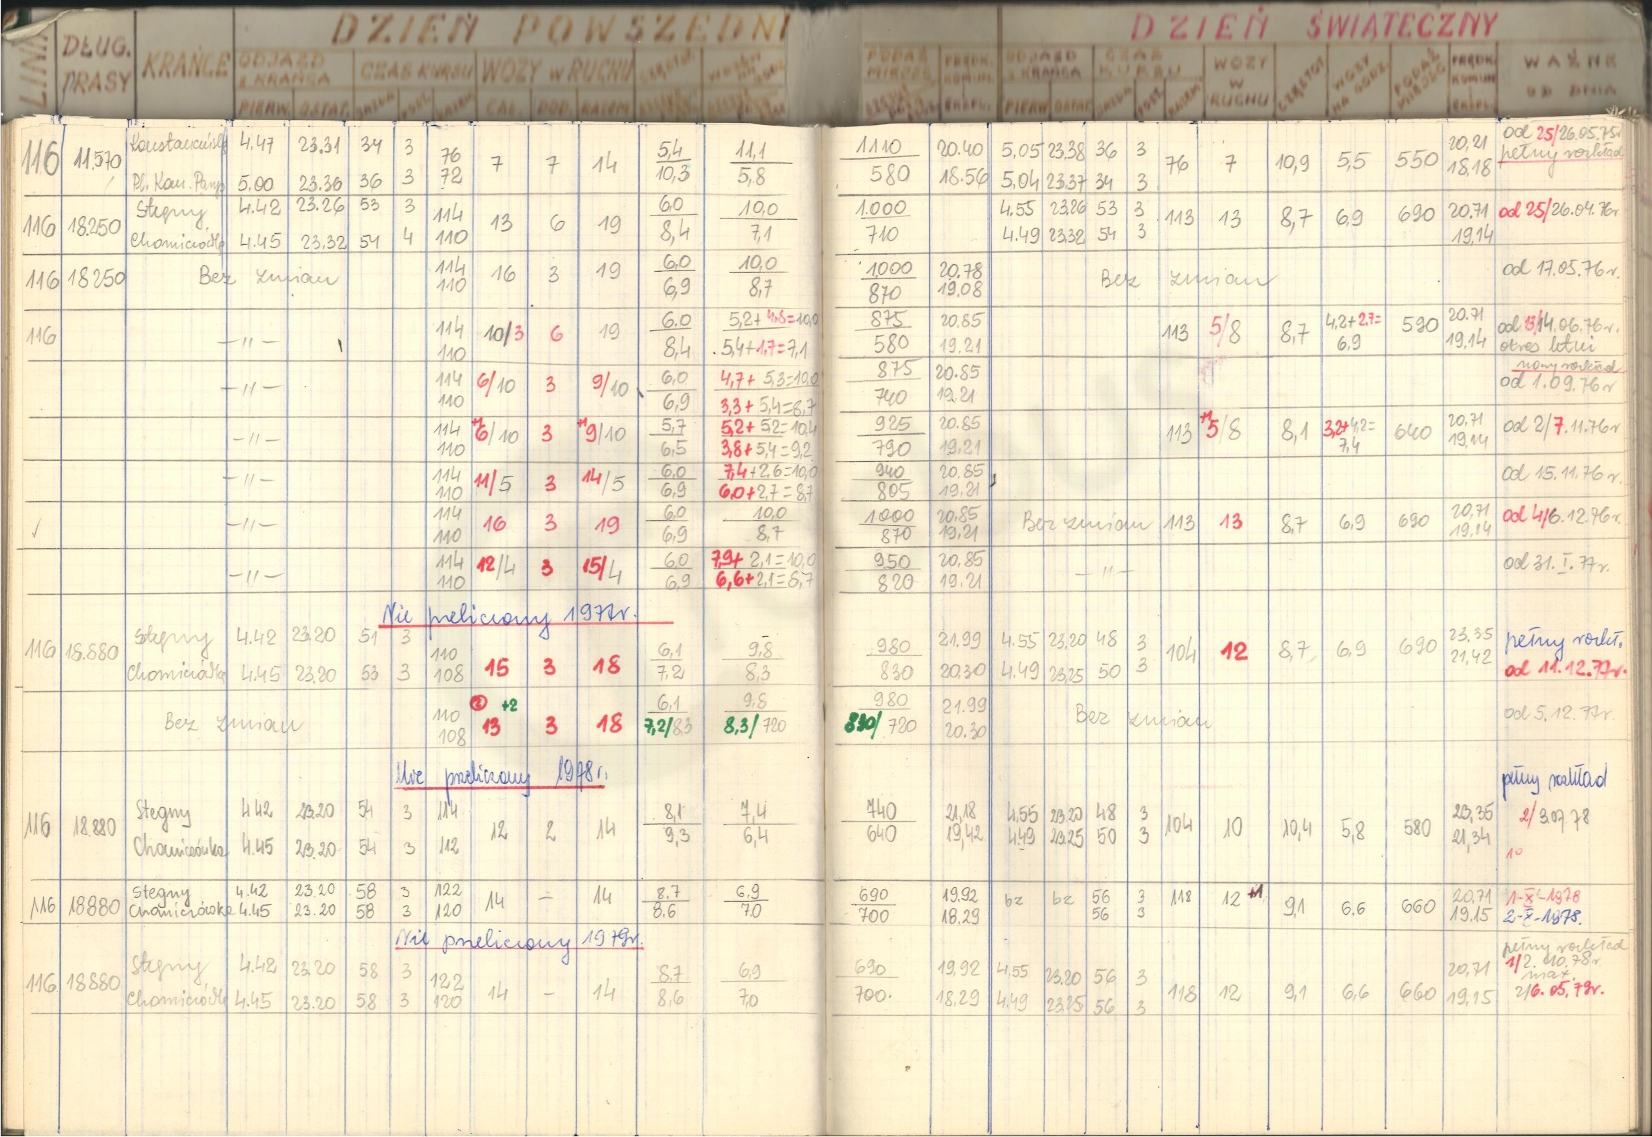 DZIEŃ POWSZEDNI DZIEŃ ŚWIĄTECZNY
LINIA DŁUG. TRASY KRAŃCE ODJAZD Z KRAŃCA CZAS KURSU WOZY W RUCHU ODJAZD Z KRAŃCA CZAS KURSU WOZY W RUCHU CZĘSTOT. WOZY NA GODZ. PODAŻ MIEJSC WAŻNE OD DNIA
PIERW. OSTAT. JAZDA POST. RAZEM CAŁ. DOD. RAZEM PIERW. OSTAT. JAZDA POST. RAZEM
4.47 23.31 34 3 76 5,4 11,1 1110 20.40 5,05 23.38 36 3 20,21 od 25/26.05.75r
116 11.570 7 7 14 76 7 10,9 5,5 550 pełny rozkład
5.00 23.36 36 3 72 10,3 5,8 580 18.56 5,04 23.37 34 3 18.18
Stegny 4.42 23.26 53 3 114 6.0 10,0 1.000 4.55 23.26 53 3 20,71
116 18.250 13 6 19 113 13 8,7 6,9 690 od 25/26.04.76r
Chomiczówka 4.45 23.32 54 4 110 8,4 7,1 710 4.49 23.32 54 3 19,14
116 18250 Bez zmian 114 16 3 19 6,0 10,0 1000 20.78 Bez zmian od 17.05.76r.
110 6,9 8,7 870 19.08
116 -"- 114 10/3 6 19 6.0 5,2+4,8=10,0 875 20.85 113 5/8 8,7 4,2+2.7= 590 20.71 od 13/14.06.76r.
110 8,4 5,4+1,7=7,1 580 19.21 6.9 19,14 okres letni
-"- 114 6/10 3 9/10 6,0 4,7+5,3=10,0 875 20.85 nowy rozkład
110 6,9 3,3+5,4=8,7 740 19.21 od 1.09.76r
-"- 114 6/10 3 9/10 5,7 5,2+5,2=10,4 925 20.85 113 5/8 8,1 3,2+4,2= 640 20,71 od 2/7.11.76r
110 6,5 3,8+5,4=9,2 790 19,21 7,4 19,14
-"- 114 11/5 3 14/5 6.0 7,4+2,6=10,0 940 20.85 od 15.11.76r.
110 6,9 6,0+2,7=8,7 805 19.21
-"- 114 16 3 19 6.0 10,0 1000 20,85 Bez zmian 113 13 8,7 6,9 690 20,71 od 4/6.12.76r.
110 6,9 8,7 870 19,21 19,14
-"- 114 12/4 3 15/4 6.0 7,9+2,1=10,0 950 20,85 -"- od 31.I.77r.
110 6,9 6,6+2,1=8,7 820 19.21
Nie przeliczony 1977r.
Stegny 4.42 23.20 51 3 110 6,1 9,8 980 21.99 4.55 23,20 48 3 23,35 pełny rozkł.
116 18.880 15 3 18 104 12 8,7 6,9 690
Chomiczówka 4.45 23.20 53 3 108 7,2 8,3 830 20.30 4.49 23,25 50 3 21,42 od 11.12.77r.
+2
Bez zmian 110 13 3 18 6,1 9,8 980 21.99 Bez zmian od 5.12.77r.
108 7,2/8,3 8,3/720 830/720 20.30
Nie przeliczony 1978r.
pełny rozkład
Stegny 4.42 23.20 54 3 114 8,1 7,4 740 21,18 4.55 23.20 48 3 23,35 2/3.07.78
116 18.880 12 2 14 104 10 10,4 5,8 580
Chomiczówka 4.45 23.20 54 3 112 9,3 6,4 640 19,42 4.49 23.25 50 3 21,34
10
Stegny 4.42 23.20 58 3 122 8.7 6,9 690 19.92 bz bz 56 3 20,71 1-X-1978
116 18880 14 - 14 118 12 +1 9,1 6.6 660
Chomiczówka 4.45 23.20 58 3 120 8.6 7.0 700 18.29 56 3 19.15 2-X-1978.
Nie przeliczony 1979r.
pełny rozkład
Stegny 4.42 23.20 58 3 122 8.7 6,9 690 19,92 4.55 23.20 56 3 20,71 1/2.10.78r
116 18880 14 - 14 118 12 9,1 6.6 660
Chomiczówka 4.45 23.20 58 3 120 8,6 7,0 700. 18.29 4.49 23.25 56 3 19,15 2/6.05.79r.